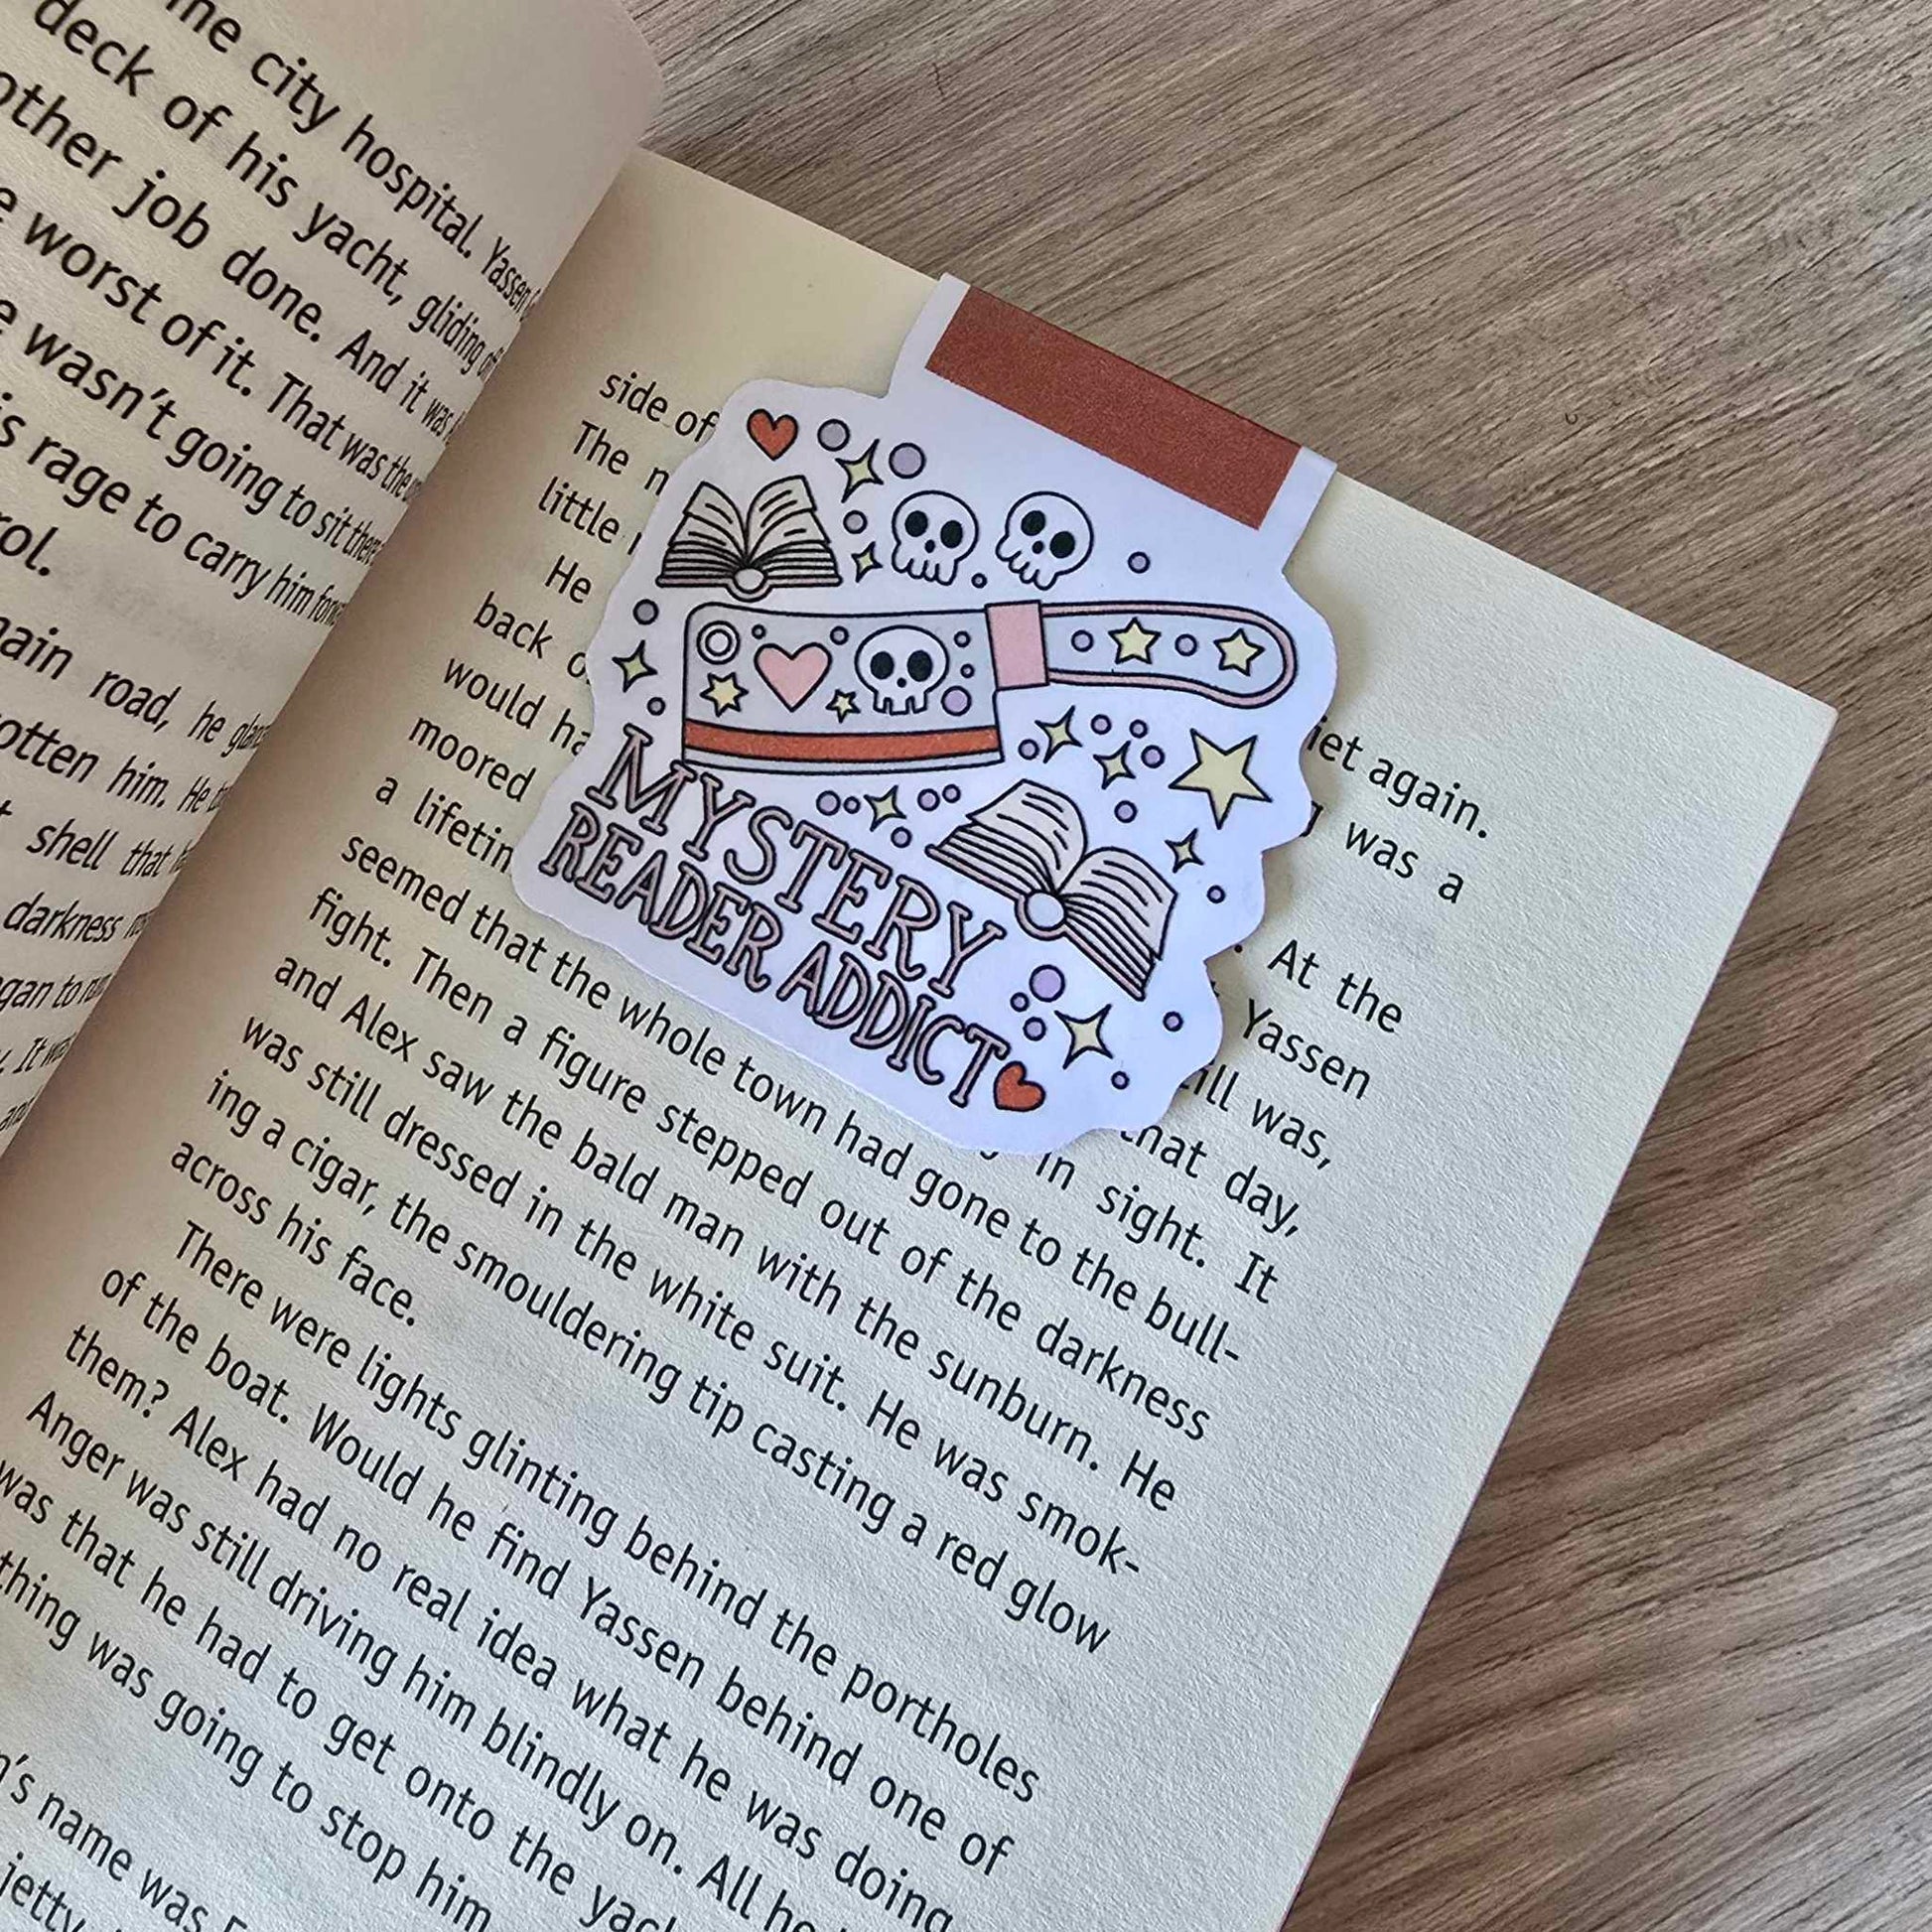 the city hospital. Yassen
deck of his yacht, gliding
other job done. And it was
worst of it. That was the
wasn't going to sit there
rage to carry him
road, he
him. He
shell that
darkness
to run
It
side of
The
little
He
back
would
moored
a
seemed that the whole town had gone to the bull-
fight. Then a figure stepped out of the darkness
and Alex saw the bald man with the sunburn. He
was still dressed in the white suit. He was smok-
ing a cigar, the smouldering tip casting a red glow
across his face.
There were lights glinting behind the portholes
of the boat. Would he find Yassen behind one of
them? Alex had no real idea what he was doing
Anger was still driving him blindly on. All he
was that he had to get onto the
thing was going to stop him
name was
jetty
again.
was a
At the
Yassen
was,
that day,
in sight. It
MYSTERY
READER ADDICT